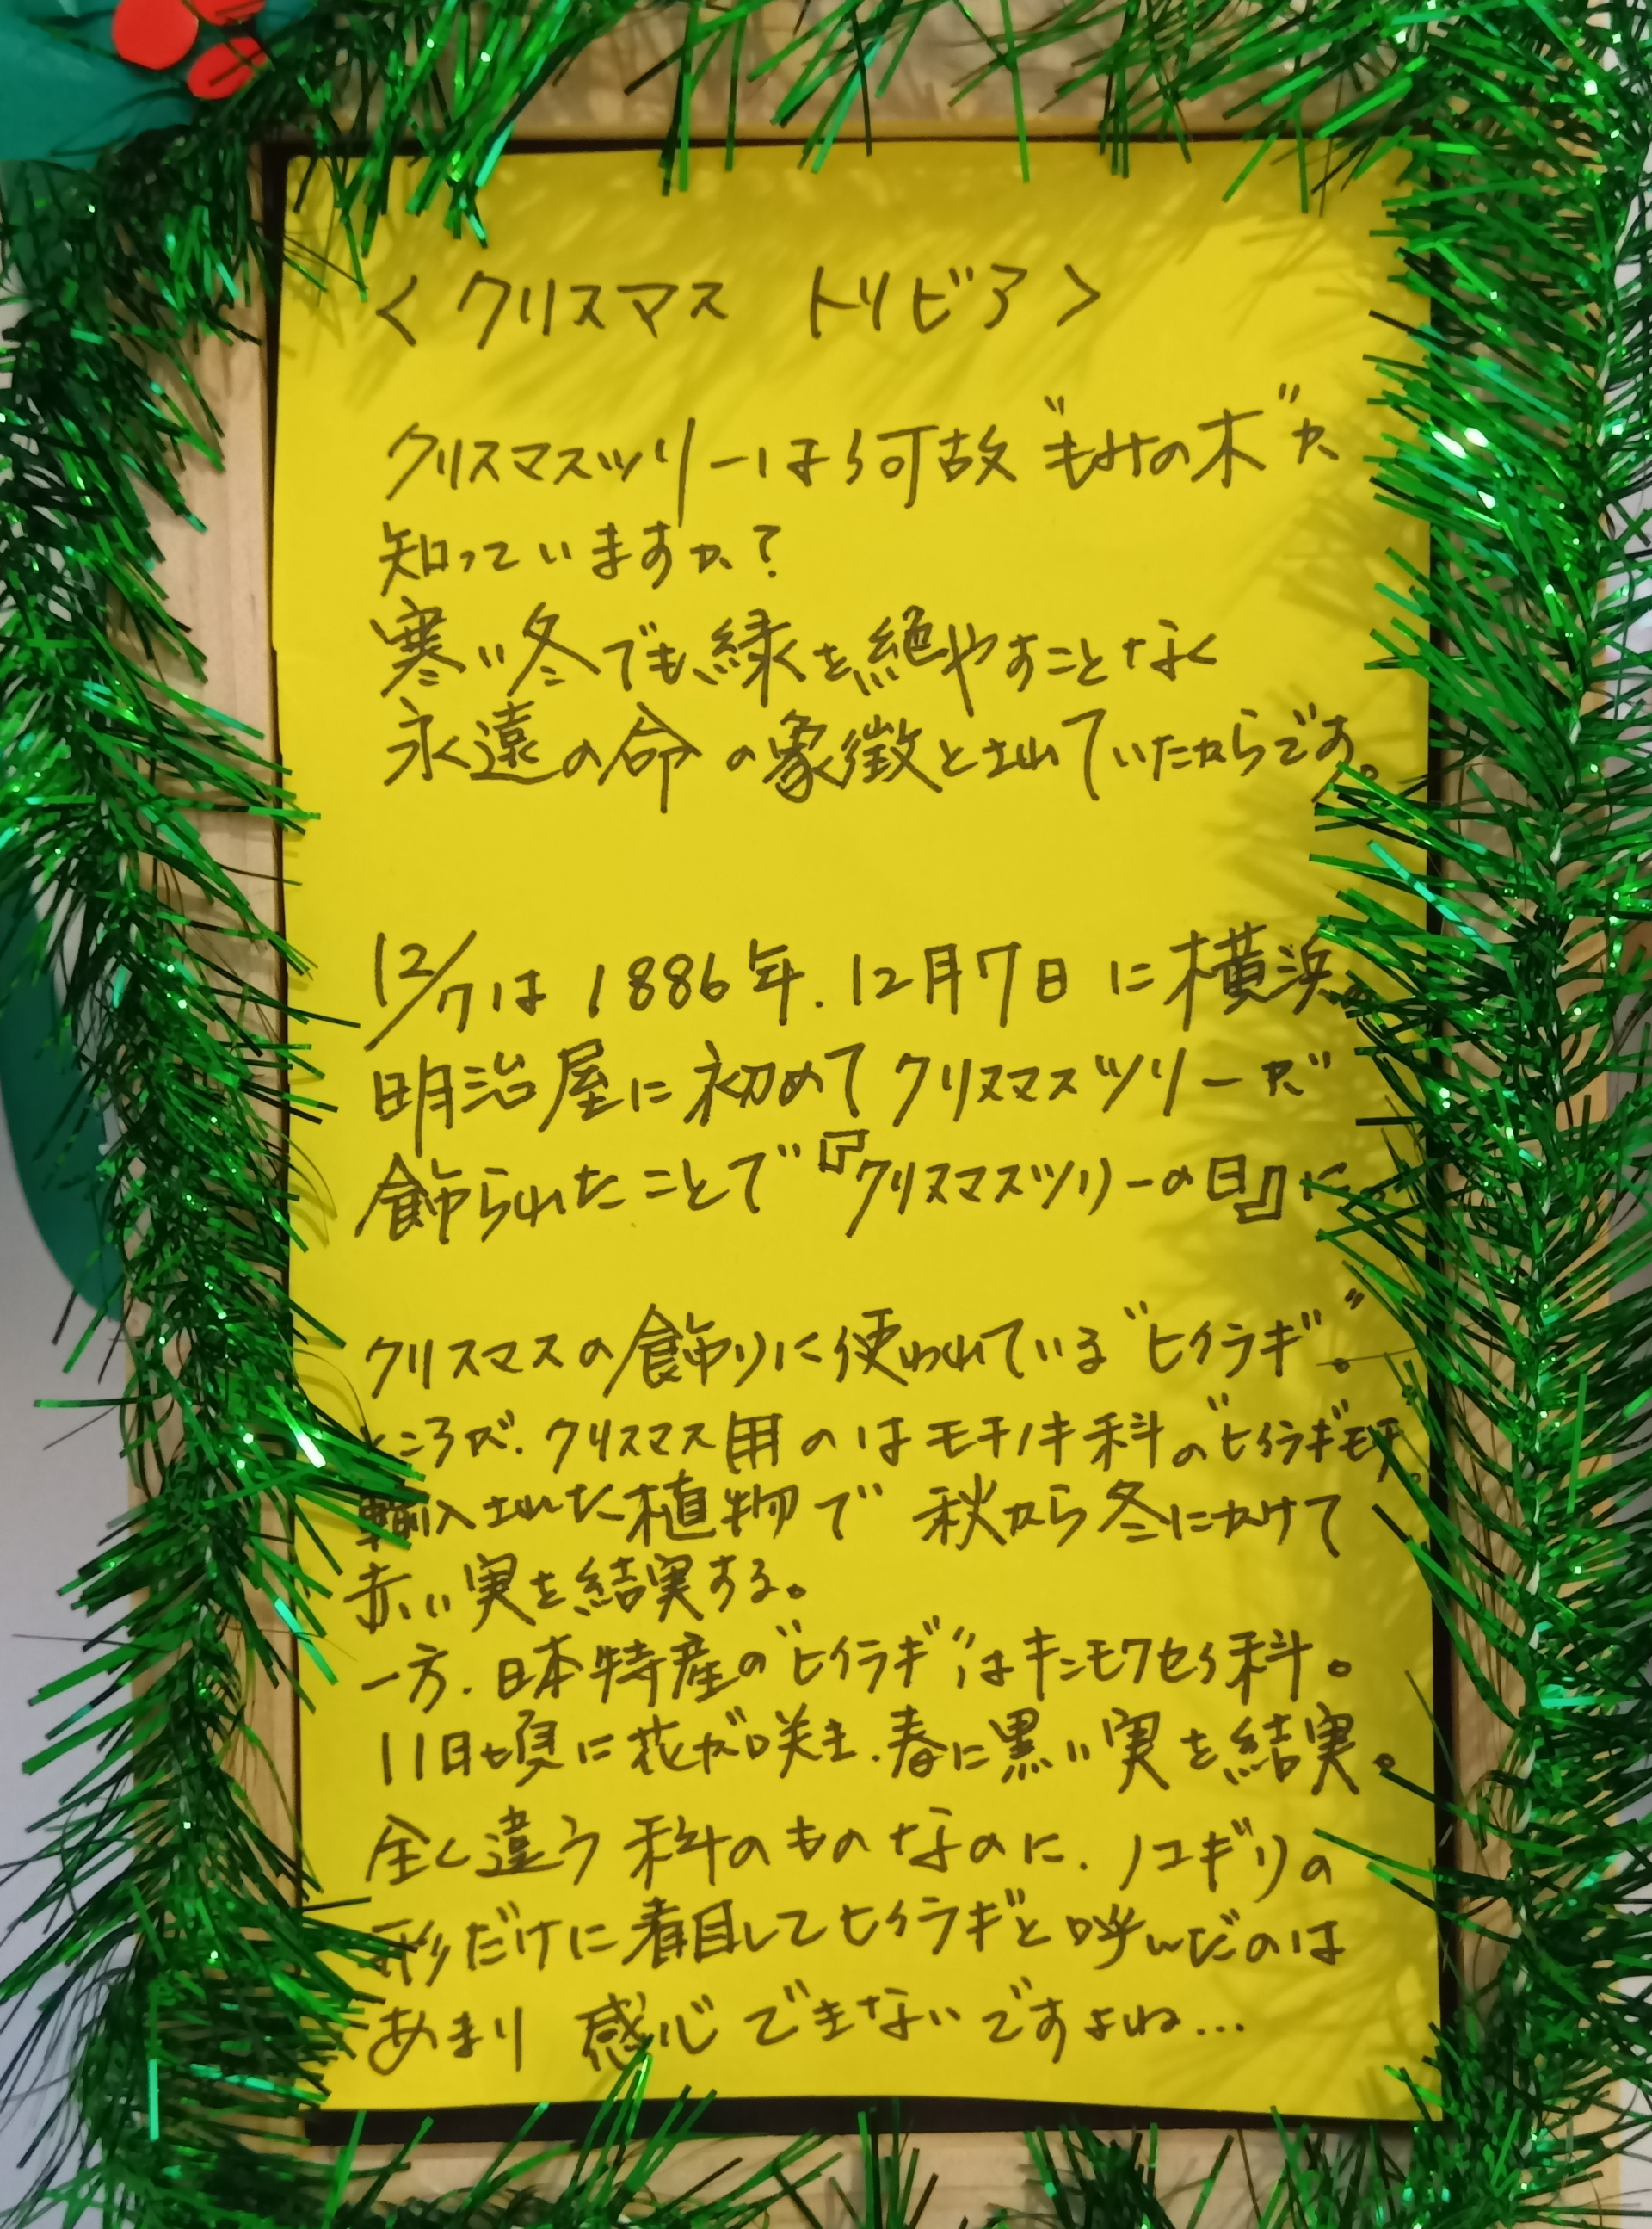 <クリスマス トリビア>
クリスマスツリーは何故“もみの木”か
知っていますか?
寒い冬でも緑を絶やすことなく
永遠の命の象徴とされていたからです。
12/7は1886年.12月7日に横浜
明治屋に初めてクリスマスツリーが
飾られたことで『クリスマスツリーの日』に。
クリスマスの飾りに使われている“ヒイラギ”。
ところが、クリスマス用のはモチノキ科の“ヒイラギモチ”。
輸入された植物で 秋から冬にかけて
赤い実を結実する。
一方、日本特産の“ヒイラギ”はキンモクセイ科。
11日頃に花が咲き、春に黒い実を結実。
全く違う科のものなのに、ノコギリの
形だけに着目してヒイラギと呼んだのは
あまり 感心できないですよね…